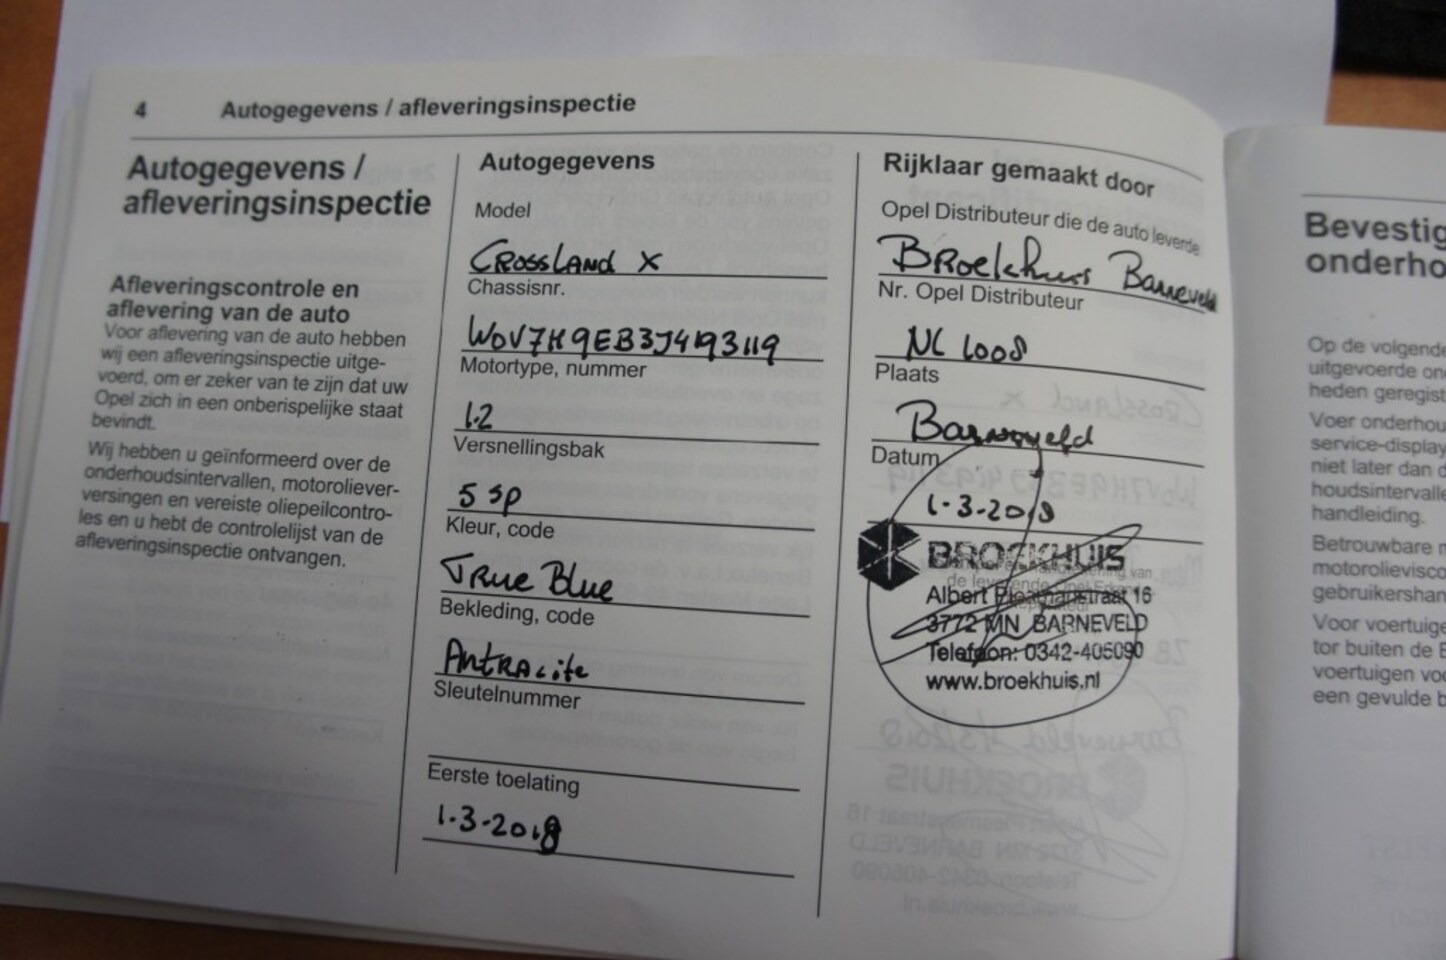 4 Autogegevens / afleveringsinspectie
Autogegevens /
afleveringsinspectie
Afleveringscontrole en
aflevering van de auto
Voor aflevering van de auto hebben
wij een afleveringsinspectie uitge-
voerd, om er zeker van te zijn dat uw
Opel zich in een onberispelijke staat
bevindt.
Wij hebben u geïnformeerd over de
onderhoudsintervallen, motoroliever-
versingen en vereiste oliepeilcontro-
les en u hebt de controlelijst van de
afleveringsinspectie ontvangen.
Autogegevens
Model
Crossland X
Chassisnr.
W0V7H9EB3J4193119
Motortype, nummer
1.2
Versnellingsbak
5 sp
Kleur, code
True Blue
Bekleding, code
Antracite
Sleutelnummer
Eerste toelating
1-3-2018
Rijklaar gemaakt door
Opel Distributeur die de auto leverde
Broekhuis Barneveld
Nr. Opel Distributeur
NL 1008
Plaats
Barneveld
Datum
1-3-2018
BROEKHUIS
de leverende Opel
Albert 16
3772 MN BARNEVELD
Telefoon: 0342-405090
www.broekhuis.nl
Bevestig
onderho
Op de volgende
uitgevoerde on
heden geregist
Voer onderhou
service-display
niet later dan d
houdsintervalle
handleiding.
Betrouwbare m
motorolievisco
gebruikershan
Voor voertuige
tor buiten de E
voertuigen voo
een gevulde b